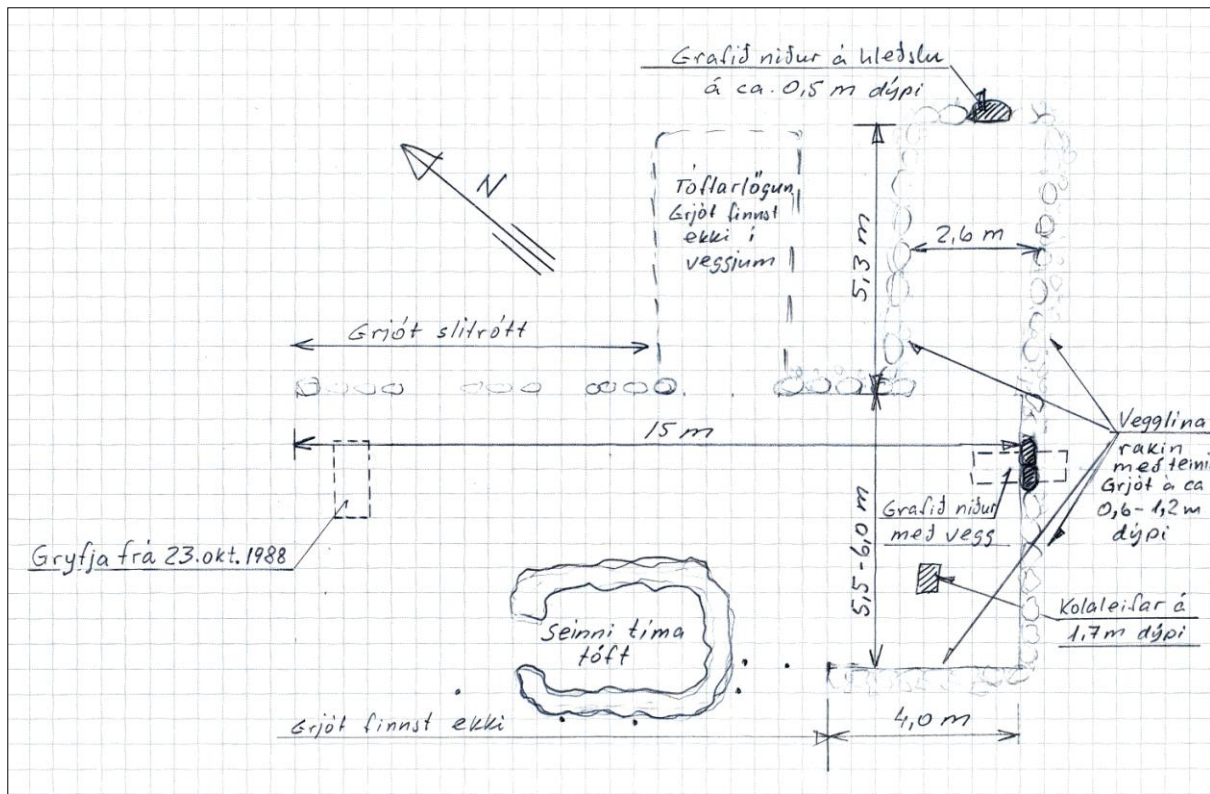 Grafið niður á hleðslu
á ca. 0,5 m dýpi
N
Tóftarlögun
Grjót finnst
ekki í
veggjum
5,3 m
2,6 m
Grjót slitrótt
15 m
Vegglína
rakin
með teini
Grjót á ca
0,6-1,2 m
dýpi
Grafið niður
með vegg
5,5-6,0 m
Gryfja frá 23. okt. 1988
Seinni tíma
tóft
Kolaleifar á
1,7 m dýpi
Grjót finnst ekki
4,0 m